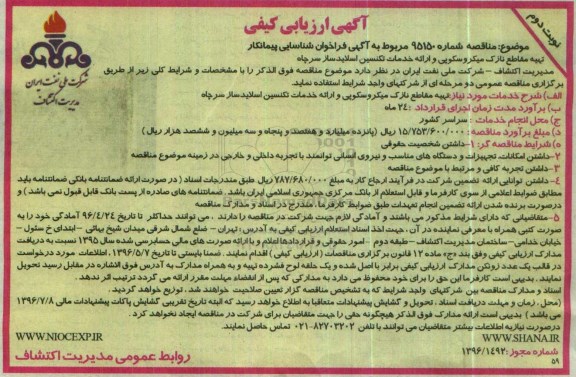 آگهی ارزیابی کیفی
نوبت دوم
شرکت ملی نفت ایران
مدیریت اکتشاف
موضوع: مناقصه شماره ۹۵۱۵۰ مربوط به آگهی فراخوان شناسایی پیمانکار
تهیه مقاطع نازک میکروسکوپی و ارائه خدمات تکنسین اسلایدساز سرچاه
مدیریت اکتشاف - شرکت ملی نفت ایران در نظر دارد موضوع مناقصه فوق الذکر را با مشخصات و شرایط کلی زیر از طریق
برگزاری مناقصه عمومی دو مرحله ای از شرکتهای واجد شرایط استفاده نماید.
الف) شرح خدمات مورد نیاز: تهیه مقاطع نازک میکروسکوپی و ارائه خدمات تکنسین اسلایدساز سرچاه
ب) برآورد مدت زمان اجرای قرارداد: ۲۴ ماه
ج) محل انجام خدمات: سراسر کشور
د) مبلغ برآورد مناقصه: ۱۵/۷۵۳/۶۰۰/۰۰۰ ریال (پانزده میلیارد و هفتصد و پنجاه و سه میلیون و ششصد هزار ریال)
ه) شرایط مناقصه گر: ۱- داشتن شخصیت حقوقی
۲- داشتن امکانات، تجهیزات و دستگاه های مناسب و نیروی انسانی توانمند با تجربه داخلی و خارجی در زمینه موضوع مناقصه
۳- داشتن تجربه کافی و مرتبط با موضوع مناقصه
۴- داشتن توانایی ارائه تضمین شرکت در فرآیند ارجاع کار به مبلغ ۷۸۷/۶۸۰/۰۰۰ ریال طبق مندرجات اسناد (در صورت ارائه ضمانتنامه بانکی ضمانتنامه باید
مطابق ضوابط اعلامی از سوی کارفرما و قابل استعلام از بانک مرکزی جمهوری اسلامی ایران باشد. ضمانتنامه های صادره از پست بانک قابل قبول نمی باشد) و
درصورت برنده شدن ارائه تضمین انجام تعهدات طبق ضوابط کارفرما، مندرج در اسناد و مدارک مناقصه
۵- متقاضیانی که دارای شرایط مذکور می باشند و آمادگی لازم جهت شرکت در مناقصه را دارند، می توانند حداکثر تا تاریخ ۹۶/۴/۲۴ آمادگی خود را به
صورت کتبی همراه با معرفی نماینده در آن، جهت اخذ اسناد استعلام ارزیابی کیفی به آدرس: تهران - ضلع شمال شرقی میدان شیخ بهائی - ابتدای خ سئول -
خیابان خدامی - ساختمان مدیریت اکتشاف - طبقه دوم - امور حقوقی و قراردادها اعلام و با ارائه صورت های مالی حسابرسی شده سال ۱۳۹۵ نسبت به دریافت
مدارک ارزیابی کیفی وفق بند «ج» ماده ۱۲ قانون برگزاری مناقصات (ارزیابی کیفی) اقدام نمایند. ضمنا بایستی تا تاریخ ۱۳۹۶/۵/۷، اطلاعات مورد درخواست
در قالب یک عدد زونکن مدارک ارزیابی کیفی برابر با اصل شده و یک حلقه لوح فشرده تهیه و به همراه مدارک به آدرس فوق الاشاره در مقابل رسید تحویل
نمایند. بدیهی است کارفرما این حق را برای خود محفوظ می دارد به مدارکی که پس از انقضاء مهلت مقرر ارائه می گردد ترتیب اثر ندهد.
اسناد و مدارک مناقصه بین شرکتهای واجد شرایط که به تشخیص مناقصه گزار تعیین صلاحیت خواهند شد، توزیع خواهد گردید.
(محل، زمان و مهلت دریافت اسناد، تحویل و گشایش پیشنهادات متعاقبا به اطلاع خواهد رسید که البته تاریخ تقریبی گشایش پاکات پیشنهادات مالی ۱۳۹۶/۷/۸
می باشد) بدیهی است ارائه مدارک فوق الذکر هیچگونه حقی را جهت متقاضیان برای شرکت در مناقصه ایجاد نخواهد کرد.
درصورت نیاز به اطلاعات بیشتر متقاضیان می توانند با تلفن ۸۲۷۰۳۲۰۲-۰۲۱ تماس حاصل نمایند.
WWW.SHANA.IR
WWW.NIOCEXP.IR
شماره مجوز: ۱۳۹۶/۱۴۹۲
روابط عمومی مدیریت اکتشاف
۵۹